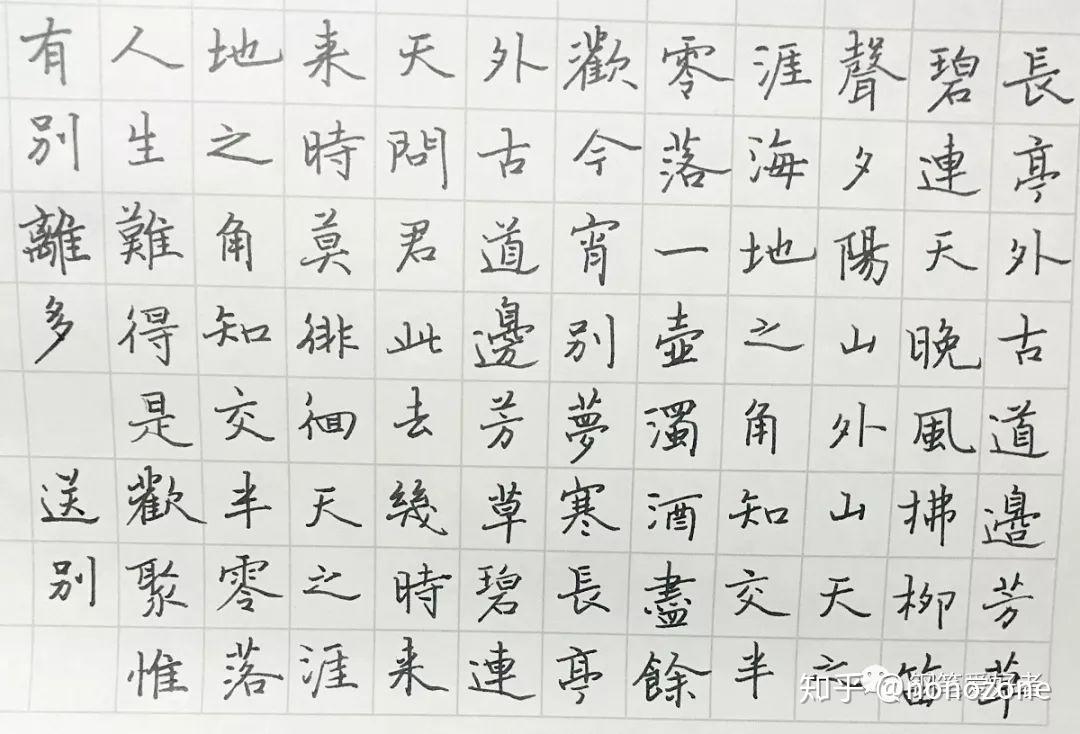 長亭外古道邊芳草
碧連天晚風拂柳笛
聲夕陽山外山天之
涯海地之角知交半
零落一壺濁酒盡餘
歡今宵別夢寒長亭
外古道邊芳草碧連
天問君此去幾時来
来時莫徘徊天之涯
地之角知交半零落
人生難得是歡聚惟
有別離多
送別
知乎 @nonozone